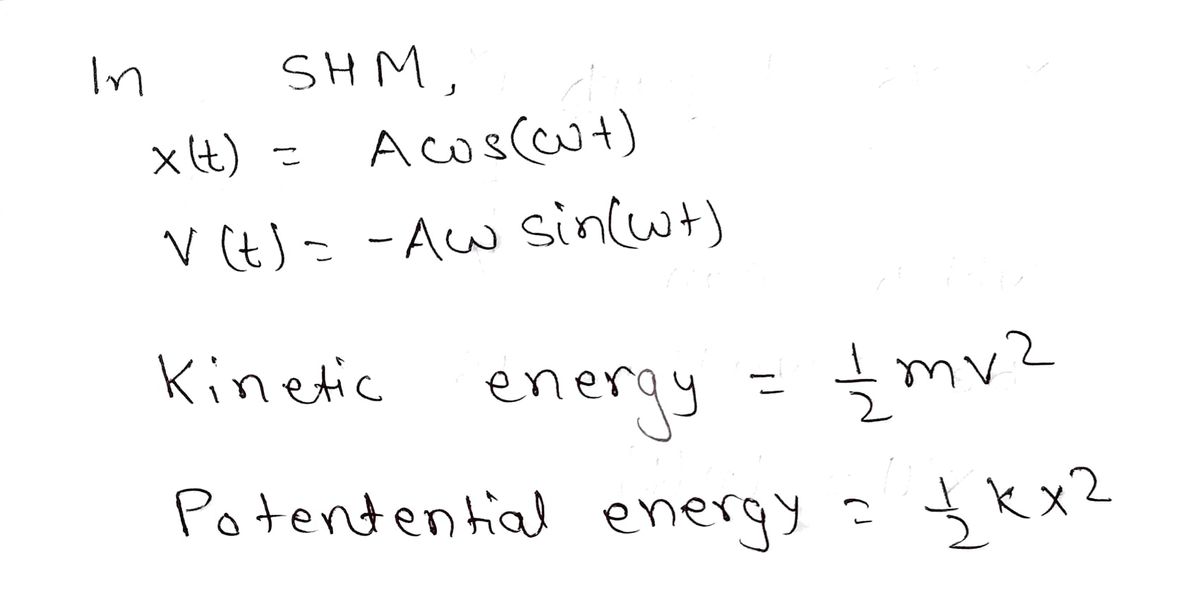 In SHM,
x(t) = A cos(ωt)
V(t) = -Aω sin(ωt)
Kinetic energy = 1/2 mv²
Potentential energy = 1/2 kx²